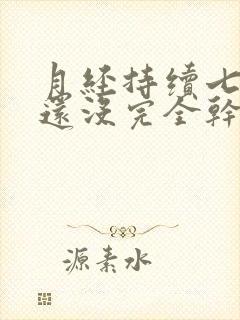 月經持續七
還沒完全幹
源素水